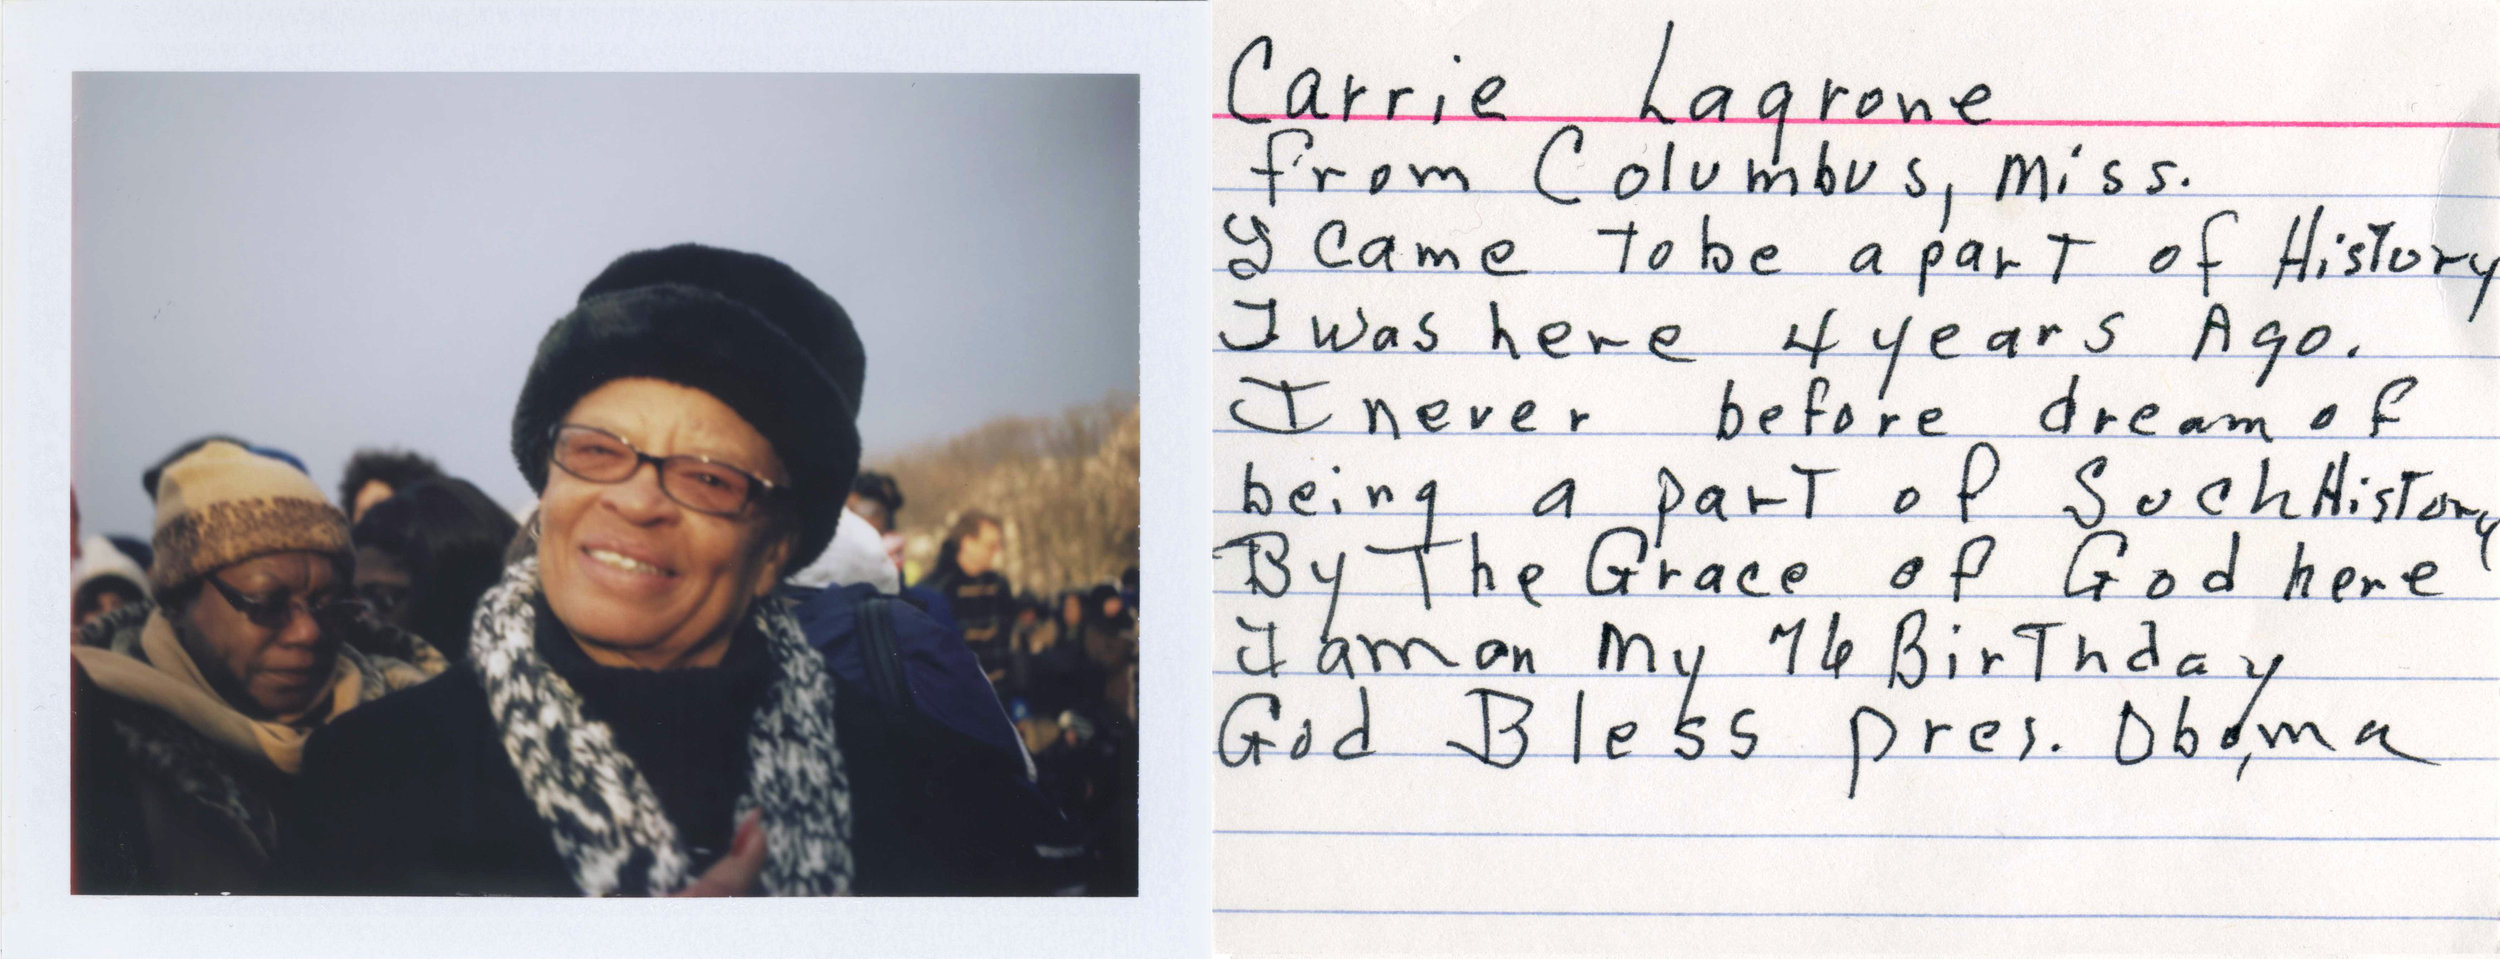 Carrie Lagrone
from Columbus, Miss.
I came to be a part of History
I was here 4 years Ago.
I never before dream of
being a part of Such History
By The Grace of God here
I am on my 76 Birthday
God Bless pres. Obama